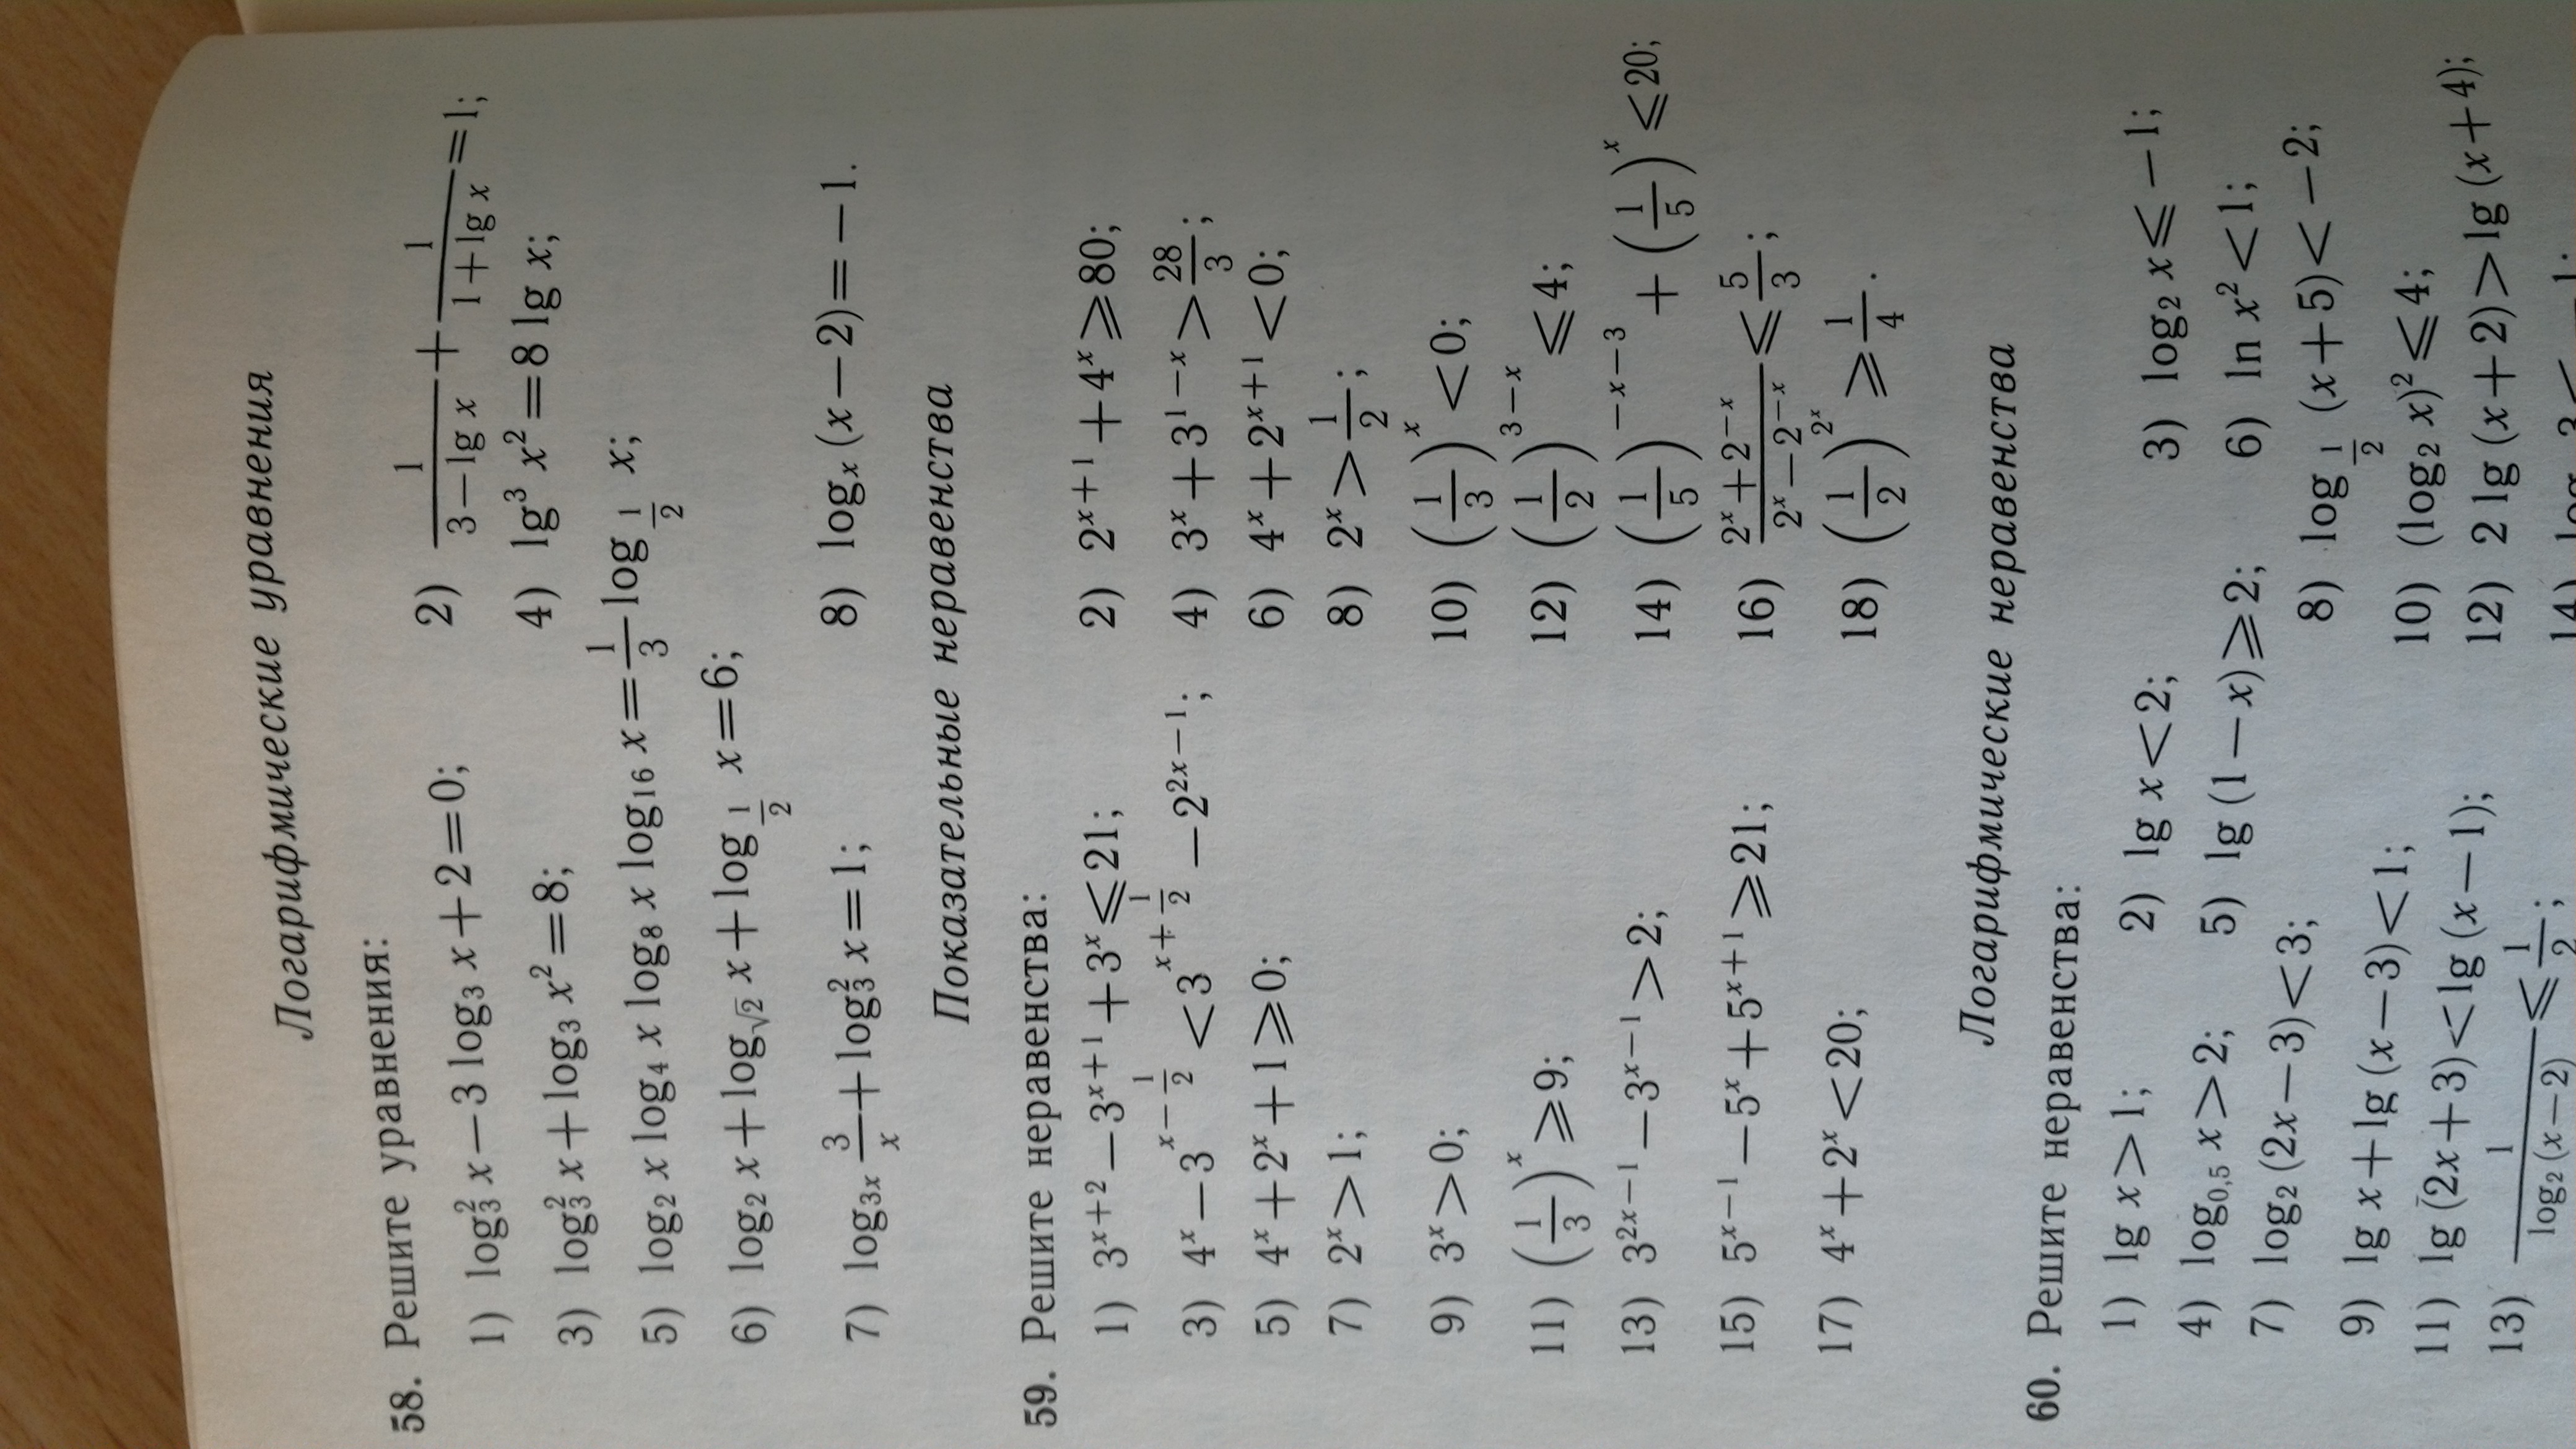 Логарифмические уравнения
58. Решите уравнения:
1) log₃² x − 3 log₃ x + 2 = 0; 2) 1/(3 − lg x) + 1/(1 + lg x) = 1;
3) log₃² x + log₃ x² = 8; 4) lg³ x² = 8 lg x;
5) log₂ x log₄ x log₈ x log₁₆ x = 1/3 log_{1/2} x;
6) log₂ x + log_{√2} x + log_{1/2} x = 6;
7) log_{3x} 3/x + log₃² x = 1; 8) logₓ (x − 2) = −1.
Показательные неравенства
59. Решите неравенства:
1) 3^{x+2} − 3^{x+1} + 3^x ⩽ 21; 2) 2^{x+1} + 4^x ⩾ 80;
3) 4^x − 3^{x−1/2} < 3^{x+1/2} − 2^{2x−1}; 4) 3^x + 3^{1−x} > 28/3;
5) 4^x + 2^x + 1 ⩾ 0; 6) 4^x + 2^{x+1} < 0;
7) 2^x > 1; 8) 2^x > 1/2;
9) 3^x > 0; 10) (1/3)^x < 0;
11) (1/3)^x ⩾ 9; 12) (1/2)^{3−x} ⩽ 4;
13) 3^{2x−1} − 3^{x−1} > 2; 14) (1/5)^{−x−3} + (1/5)^x ⩽ 20;
15) 5^{x−1} − 5^x + 5^{x+1} ⩾ 21; 16) (2^x + 2^{−x})/(2^x − 2^{−x}) ⩽ 5/3;
17) 4^x + 2^x < 20; 18) (1/2)^{2^x} ⩾ 1/4.
Логарифмические неравенства
60. Решите неравенства:
1) lg x > 1; 2) lg x < 2; 3) log₂ x ⩽ −1;
4) log_{0,5} x > 2; 5) lg (1 − x) ⩾ 2; 6) ln x² < 1;
7) log₂ (2x − 3) < 3; 8) log_{1/2} (x + 5) < −2;
9) lg x + lg (x − 3) < 1; 10) (log₂ x)² ⩽ 4;
11) lg (2x + 3) < lg (x − 1); 12) 2 lg (x + 2) > lg (x + 4);
13) 1/(log₂ (x − 2)) ⩽ 1/2; 14)